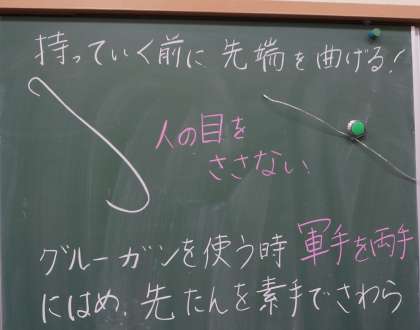 持っていく前に先端を曲げる!
人の目を
ささない
グルーガンを使う時軍手を両手
にはめ、先たんを素手でさわら